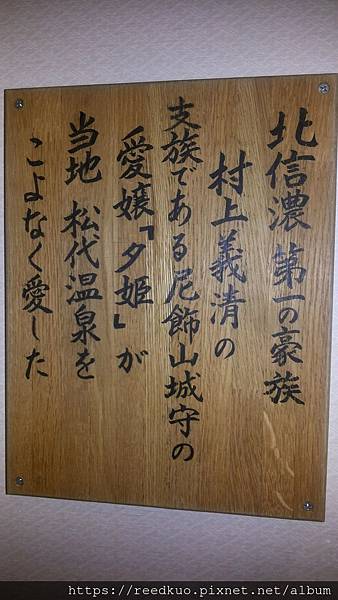 北信濃 第一の豪族
村上義清の
支族である尼飾山城守の
愛嬢「夕姫」が
当地 松代温泉を
こよなく愛した
https://reedkuo.pixnet.net/album